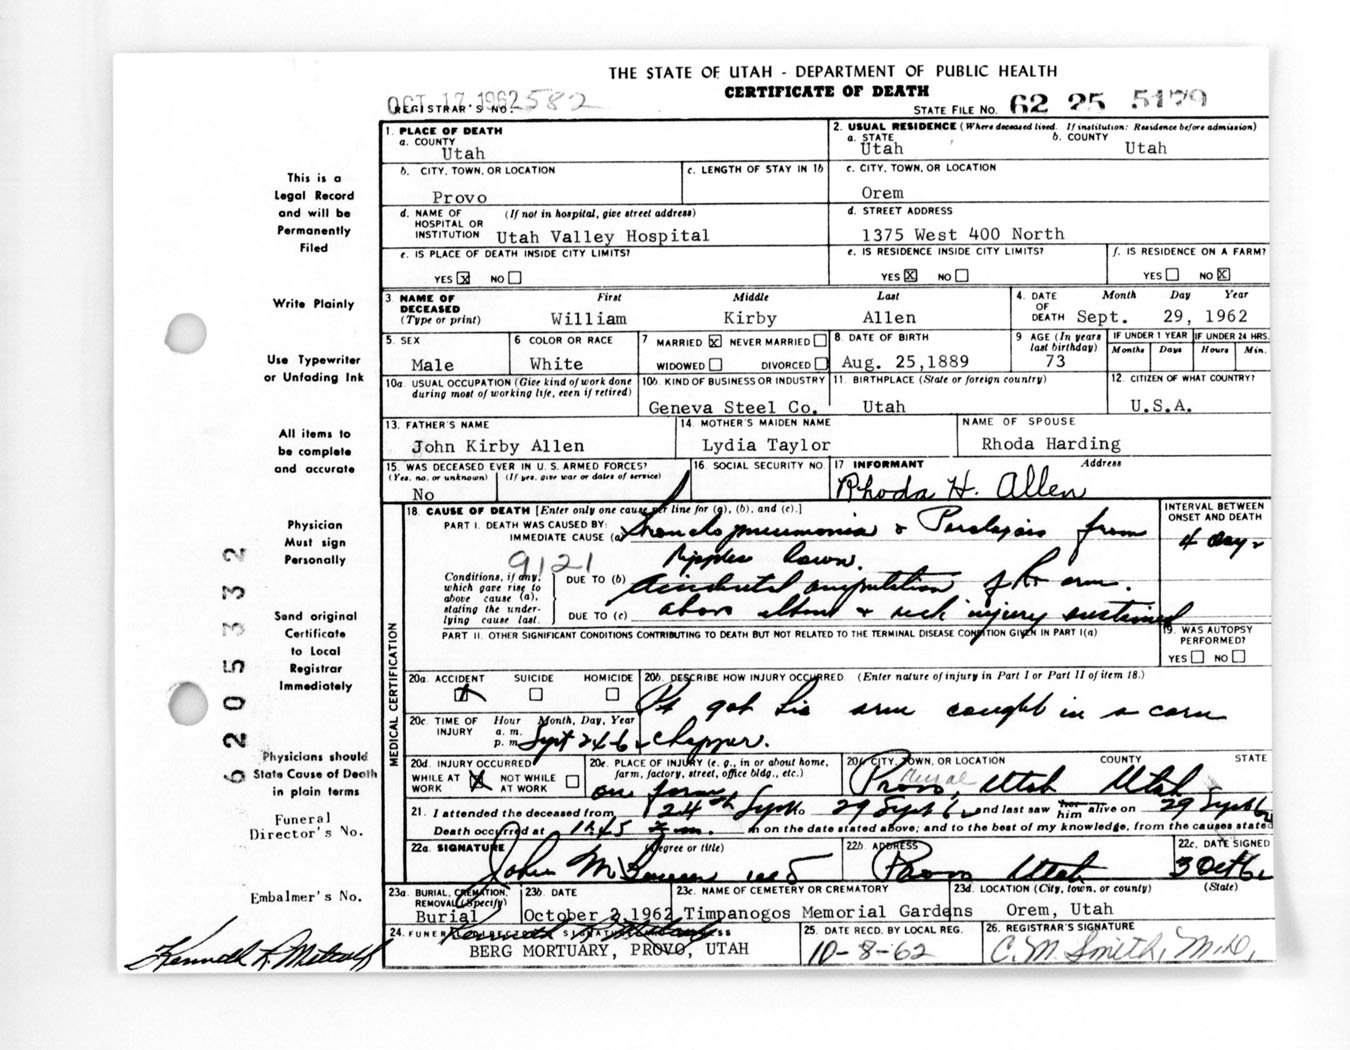 THE STATE OF UTAH - DEPARTMENT OF PUBLIC HEALTH
CERTIFICATE OF DEATH
OCT 17 1962
REGISTRAR'S NO. 582
STATE FILE NO. 62 25 5179
This is a
Legal Record
and will be
Permanently
Filed
Write Plainly
Use Typewriter
or Unfading Ink
All items to
be complete
and accurate
Physician
Must sign
Personally
Send original
Certificate
to Local
Registrar
Immediately
Physicians should
State Cause of Death
in plain terms
Funeral
Director's No.
Embalmer's No.
Kenneth L Metcalf
6205332
1. PLACE OF DEATH
a. COUNTY
Utah
2. USUAL RESIDENCE (Where deceased lived. If institution: Residence before admission)
a. STATE b. COUNTY
Utah Utah
b. CITY, TOWN, OR LOCATION
Provo
c. LENGTH OF STAY IN 1b
c. CITY, TOWN, OR LOCATION
Orem
d. NAME OF (If not in hospital, give street address)
HOSPITAL OR
INSTITUTION Utah Valley Hospital
d. STREET ADDRESS
1375 West 400 North
e. IS PLACE OF DEATH INSIDE CITY LIMITS?
YES X NO
e. IS RESIDENCE INSIDE CITY LIMITS?
YES X NO
f. IS RESIDENCE ON A FARM?
YES NO X
3. NAME OF
DECEASED
(Type or print)
First Middle Last
William Kirby Allen
4. DATE
OF
DEATH
Month Day Year
Sept. 29, 1962
5. SEX
Male
6 COLOR OR RACE
White
7 MARRIED X NEVER MARRIED
WIDOWED DIVORCED
8. DATE OF BIRTH
Aug. 25,1889
9 AGE (In years
last birthday)
73
IF UNDER 1 YEAR
Months Days
IF UNDER 24 HRS.
Hours Min.
10a. USUAL OCCUPATION (Give kind of work done
during most of working life, even if retired)
10b. KIND OF BUSINESS OR INDUSTRY
Geneva Steel Co.
11. BIRTHPLACE (State or foreign country)
Utah
12. CITIZEN OF WHAT COUNTRY?
U.S.A.
13. FATHER'S NAME
John Kirby Allen
14. MOTHER'S MAIDEN NAME
Lydia Taylor
NAME OF SPOUSE
Rhoda Harding
15. WAS DECEASED EVER IN U. S. ARMED FORCES?
(Yes, no, or unknown) (If yes, give war or dates of service)
No
16. SOCIAL SECURITY NO.
17 INFORMANT Address
Rhoda H. Allen
MEDICAL CERTIFICATION
18. CAUSE OF DEATH [Enter only one cause per line for (a), (b), and (c).]
INTERVAL BETWEEN
ONSET AND DEATH
PART I. DEATH WAS CAUSED BY:
IMMEDIATE CAUSE (a) Bronchopneumonia & Paralysis from
4 days
nipples down.
9121
Conditions, if any,
which gave rise to
above cause (a),
stating the under-
lying cause last.
DUE TO (b) accidental amputation of Rt arm.
DUE TO (c) above elbow & neck injury sustained
PART II. OTHER SIGNIFICANT CONDITIONS CONTRIBUTING TO DEATH BUT NOT RELATED TO THE TERMINAL DISEASE CONDITION GIVEN IN PART I(a)
19. WAS AUTOPSY
PERFORMED?
YES NO
20a. ACCIDENT SUICIDE HOMICIDE
X
20b. DESCRIBE HOW INJURY OCCURRED. (Enter nature of injury in Part I or Part II of item 18.)
Pt got his arm caught in a corn
chopper.
20c. TIME OF
INJURY
Hour Month, Day, Year
a. m.
p. m. Sept 24-62
20d. INJURY OCCURRED
WHILE AT
WORK X NOT WHILE
AT WORK
20e. PLACE OF INJURY (e. g., in or about home,
farm, factory, street, office bldg., etc.)
on farm
20f. CITY, TOWN, OR LOCATION COUNTY STATE
Provo, rural Utah Utah
21. I attended the deceased from 24th Sept to 29 Sept 62 and last saw her him alive on 29 Sept 62
Death occurred at 1245 m on the date stated above; and to the best of my knowledge, from the causes stated
22a. SIGNATURE (Degree or title)
John M MD
22b. ADDRESS
Provo Utah
22c. DATE SIGNED
3 Oct 62
23a. BURIAL, CREMATION,
REMOVAL (Specify)
Burial
23b. DATE
October 2,1962
23c. NAME OF CEMETERY OR CREMATORY
Timpanogos Memorial Gardens
23d. LOCATION (City, town, or county) (State)
Orem, Utah
24. FUNERAL DIRECTOR'S SIGNATURE ADDRESS
BERG MORTUARY, PROVO, UTAH
25. DATE RECD. BY LOCAL REG.
10-8-62
26. REGISTRAR'S SIGNATURE
C. M. Smith, M.D.